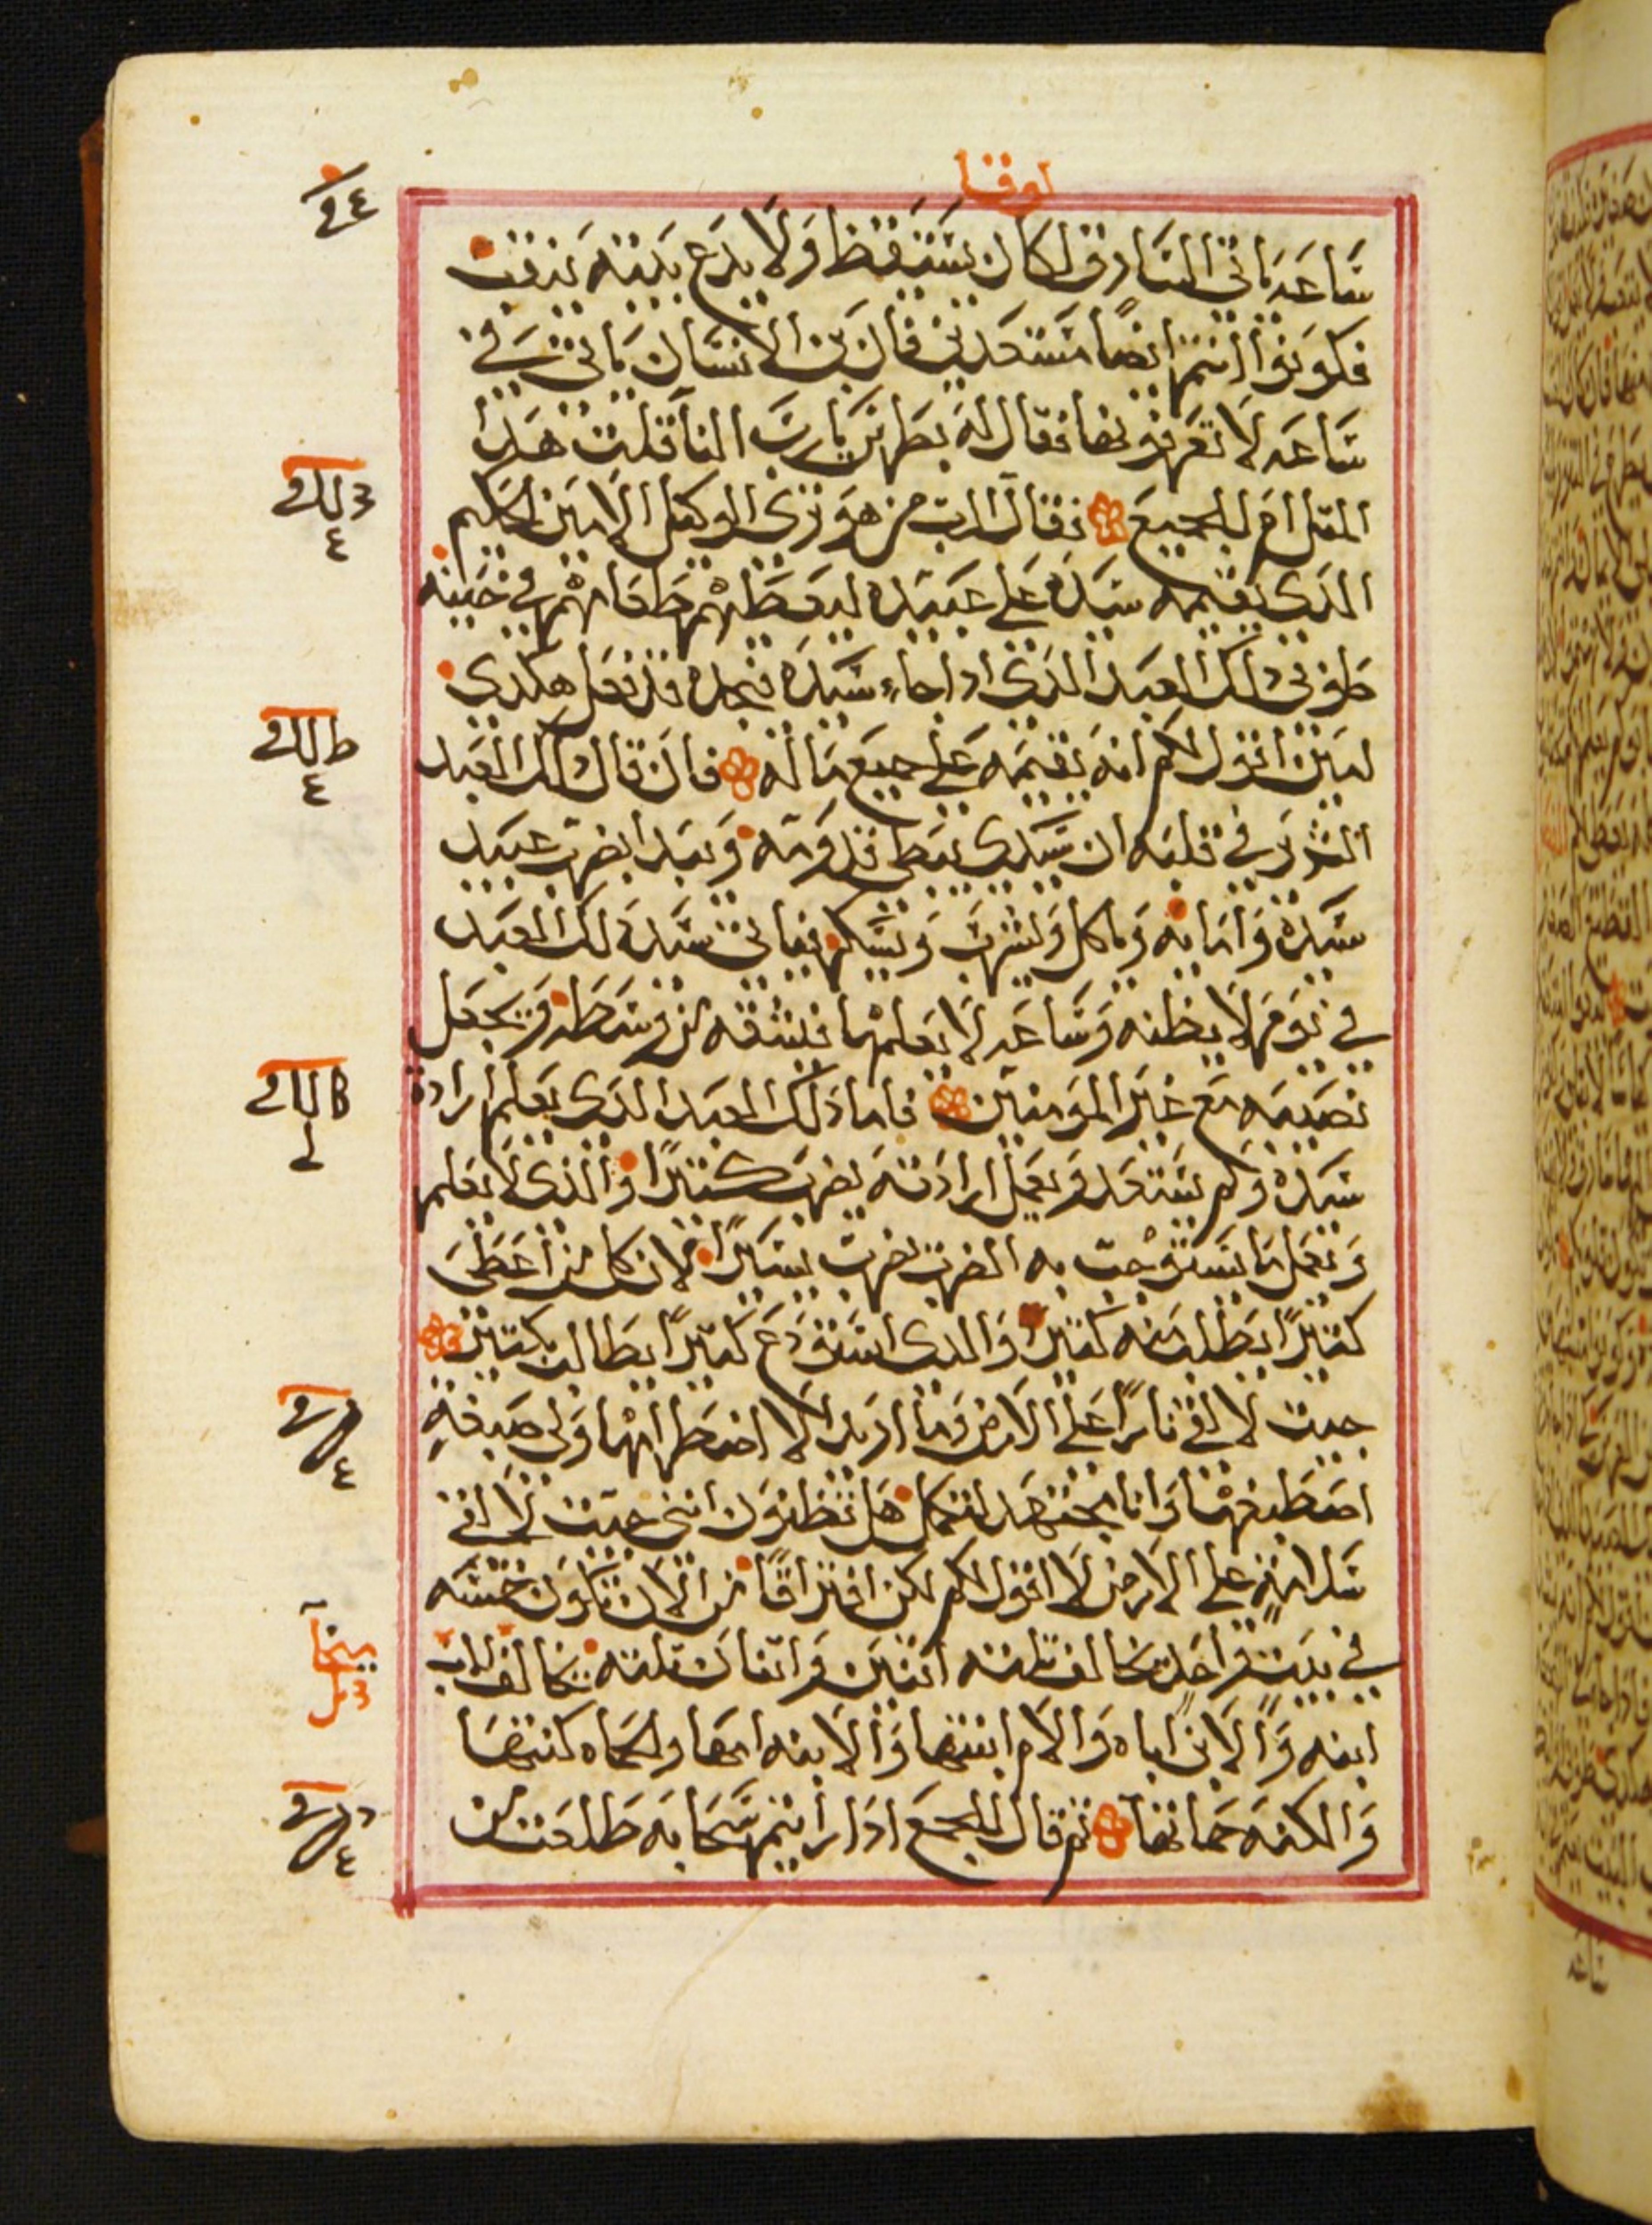 لوقا
ساعه ياتى السارق لكان يستيقظ ولا يدع بيته ينقب
فكونوا انتم ايضًا مستعدين فان بن الانسان ياتى في
ساعه لا تعرفونها فقال له بطرس يارب النا قلت هدا
المثل ام للجميع فقال الرب من هو ترى الوكيل الامين الحكيم
الدى يقيمه سيده على عبيده ليعطيهم طعامهم في حينه
طوبى لدلك العبد الذى اداجاء سيده فيجده قد فعل هكدى
امين اقول لكم انه يقيمه على جميع ماله فان قال دلك العبد
الشرير في قلبه ان سيدى يبطى قدومه ويبدا يضرب عبيد
سيده وامايه وياكل ويشرب ويسكر فياتى سيد دلك العبد
في يوم لا يظنه وساعه لا يعلمها فيشقه من وسطه ويجعل
نصيبه مع غير المومنين فاما دلك العبد الدى يعلم اراده
سيده ولم يستعد ويعمل ارادته يضرب كثيرًا والذى لا يعلم
ويعمل ما يستوجب به الضرب يضرب يسيرًا لان كل من اعطى
كثيرًا يطلب منه كثيرًا والدى استودع كثيرًا يطالب بكثير
جيت لالقى نارًا على الارض وما اريد الا اضطرامها ولى صبغه
اصطبغها وانا مجتهد لتكمل هل تظنون اننى جيت لالقى
سلامه على الارض لا اقول لكم لكن افتراقًا من الان تكون خمسه
في بيت واحد يخالف ثلثه اثنين واثنان ثلثه يخالف الاب
ابنه والابن اباه والام ابنتها والابنه امها والحماه كنتها
والكنه حماتها ثم قال للجمع ادا رايتم سحابه طلعت من